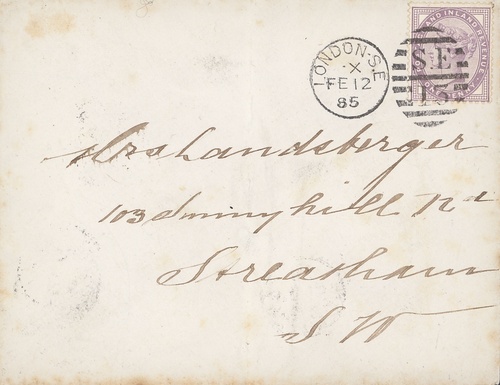 LONDON·S.E
X
FE 12
85
S.E
15
AND INLAND REVENUE
Mrs Landsberger
103 Sunnyhill Rd
Streatham
S.W